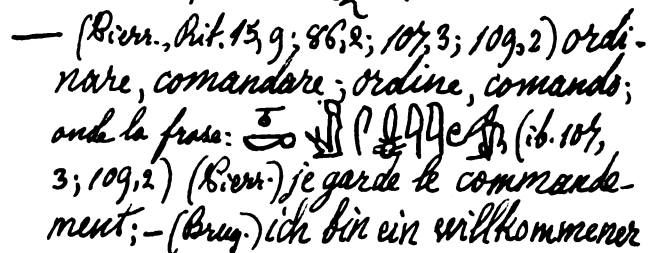 — (Pierr., Rit. 15, 9; 86, 2; 107, 3; 109, 2) ordi-
nare, comandare; ordine, comando;
onde la frase: (ib. 107,
3; 109, 2) (Pierr.) je garde le commande-
ment; — (Brug.) ich bin ein willkommener